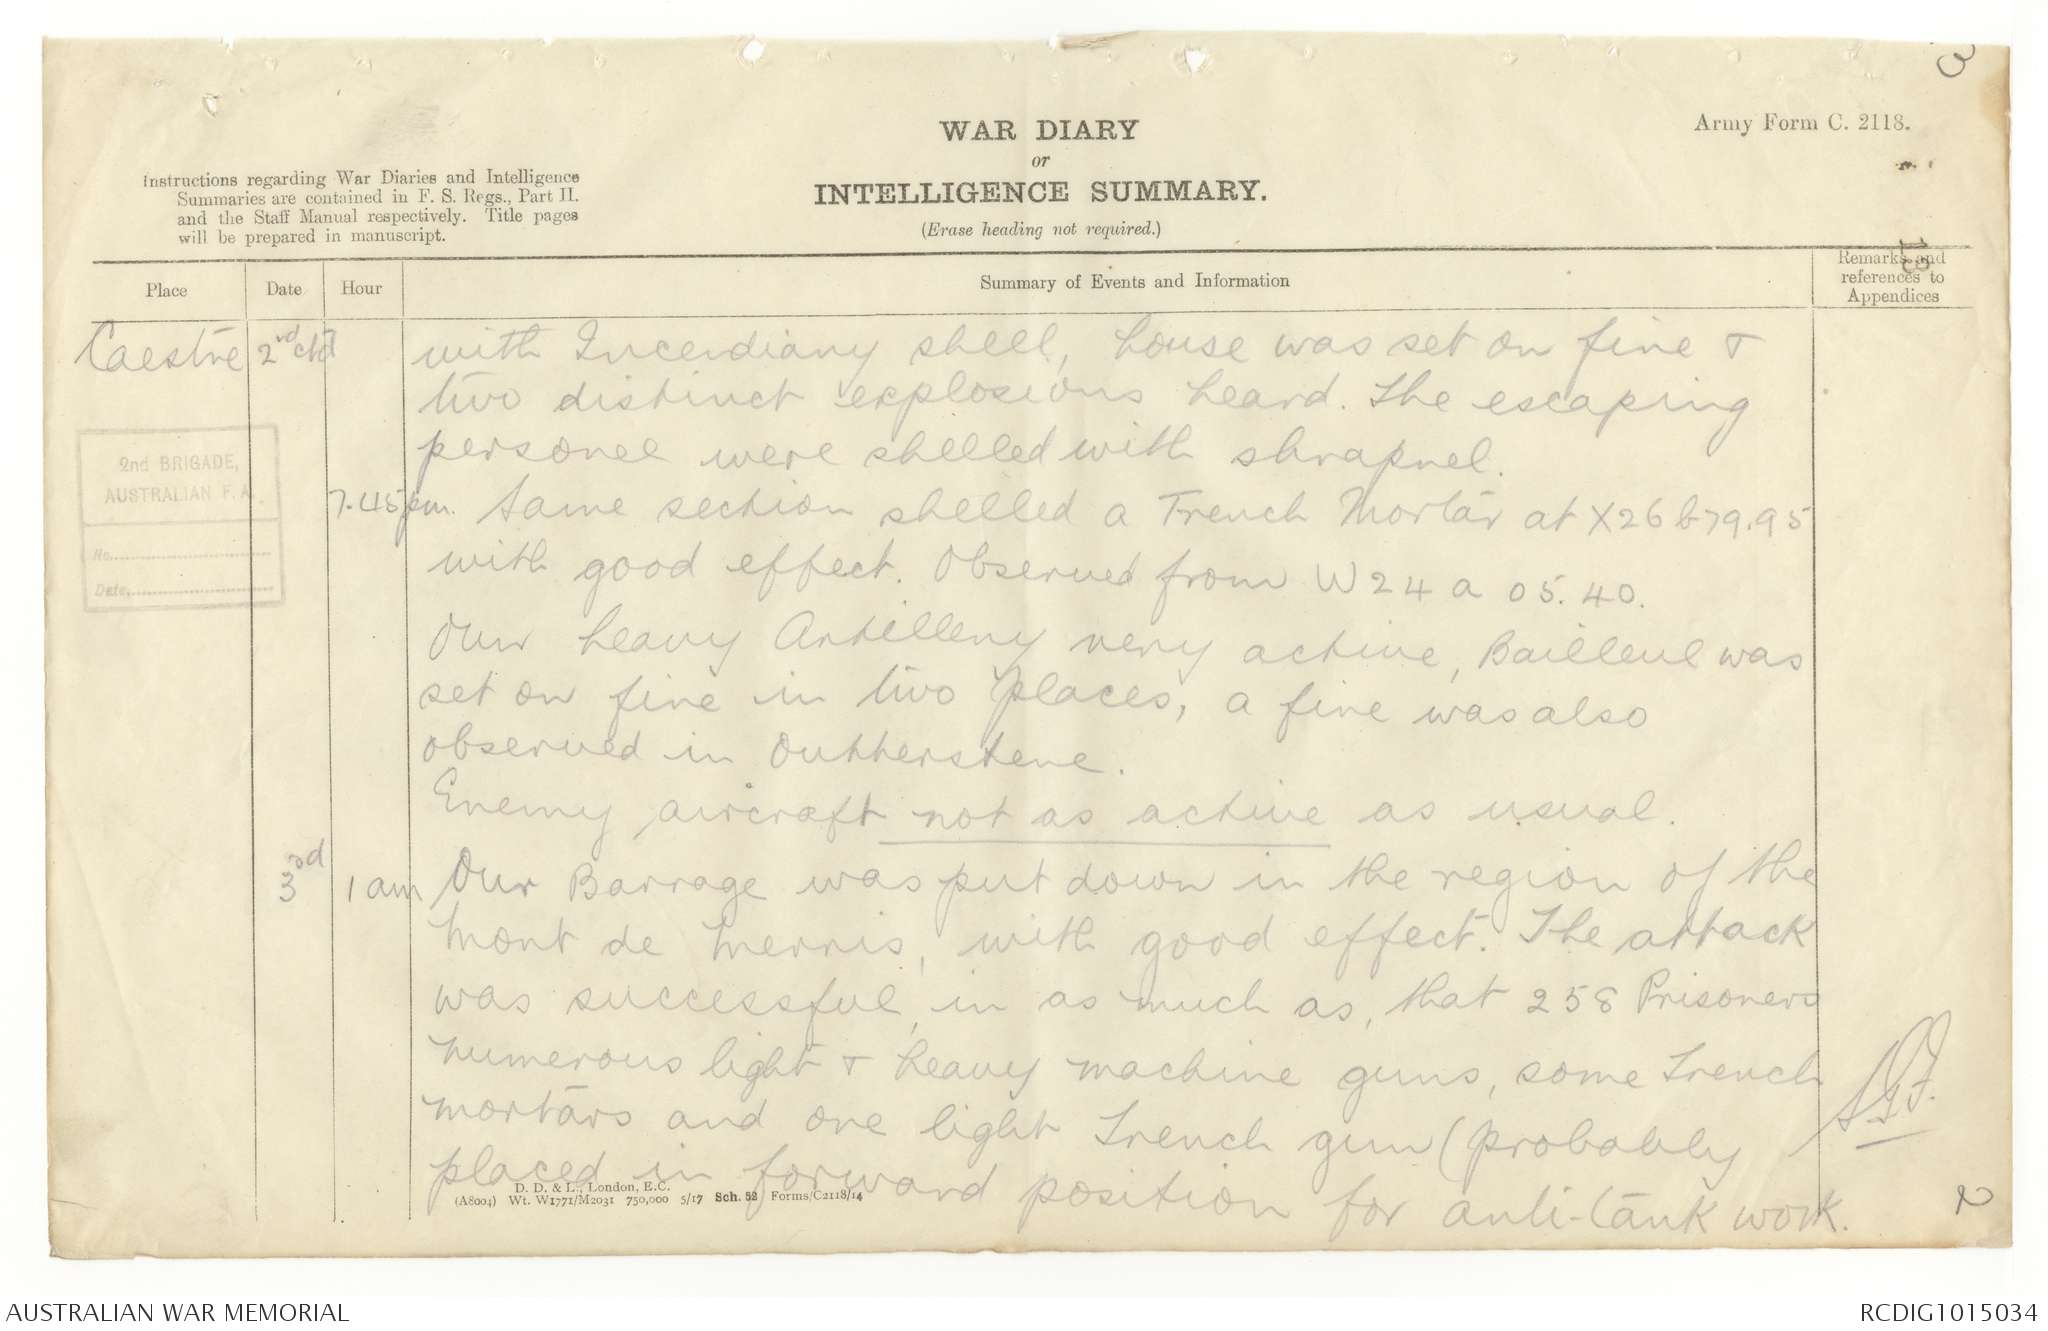 3
WAR DIARY
or
INTELLIGENCE SUMMARY.
(Erase heading not required.)
Army Form C. 2118.
Instructions regarding War Diaries and Intelligence
Summaries are contained in F. S. Regs., Part II.
and the Staff Manual respectively. Title pages
will be prepared in manuscript.
13
Place
Date
Hour
Summary of Events and Information
Remarks and
references to
Appendices
Caestre 2nd ctd with Incendiary shell, house was set on fire &
two distinct explosions heard. The escaping
personel were shelled with shrapnel.
7.45pm. Same section shelled a Trench Mortar at X26 b 79.95
with good effect. Observed from W24 a 05.40.
Our heavy Artillery very active, Bailleul was
set on fire in two places, a fire was also
observed in Outtersteene.
Enemy aircraft not as active as usual.
3rd 1 am Our Barrage was put down in the region of the
Mont de Merris, with good effect. The attack
was successful, in as much as, that 258 Prisoners
numerous light & heavy machine guns, some Trench
mortars and one light Trench gun (probably
placed in forward position for anti-tank work.
2nd BRIGADE,
AUSTRALIAN F.A.
No.
Date
D. D. & L., London, E.C.
(A8004) Wt. W1771/M2031 750,000 5/17 Sch. 52 Forms/C2118/14
2
AUSTRALIAN WAR MEMORIAL
RCDIG1015034